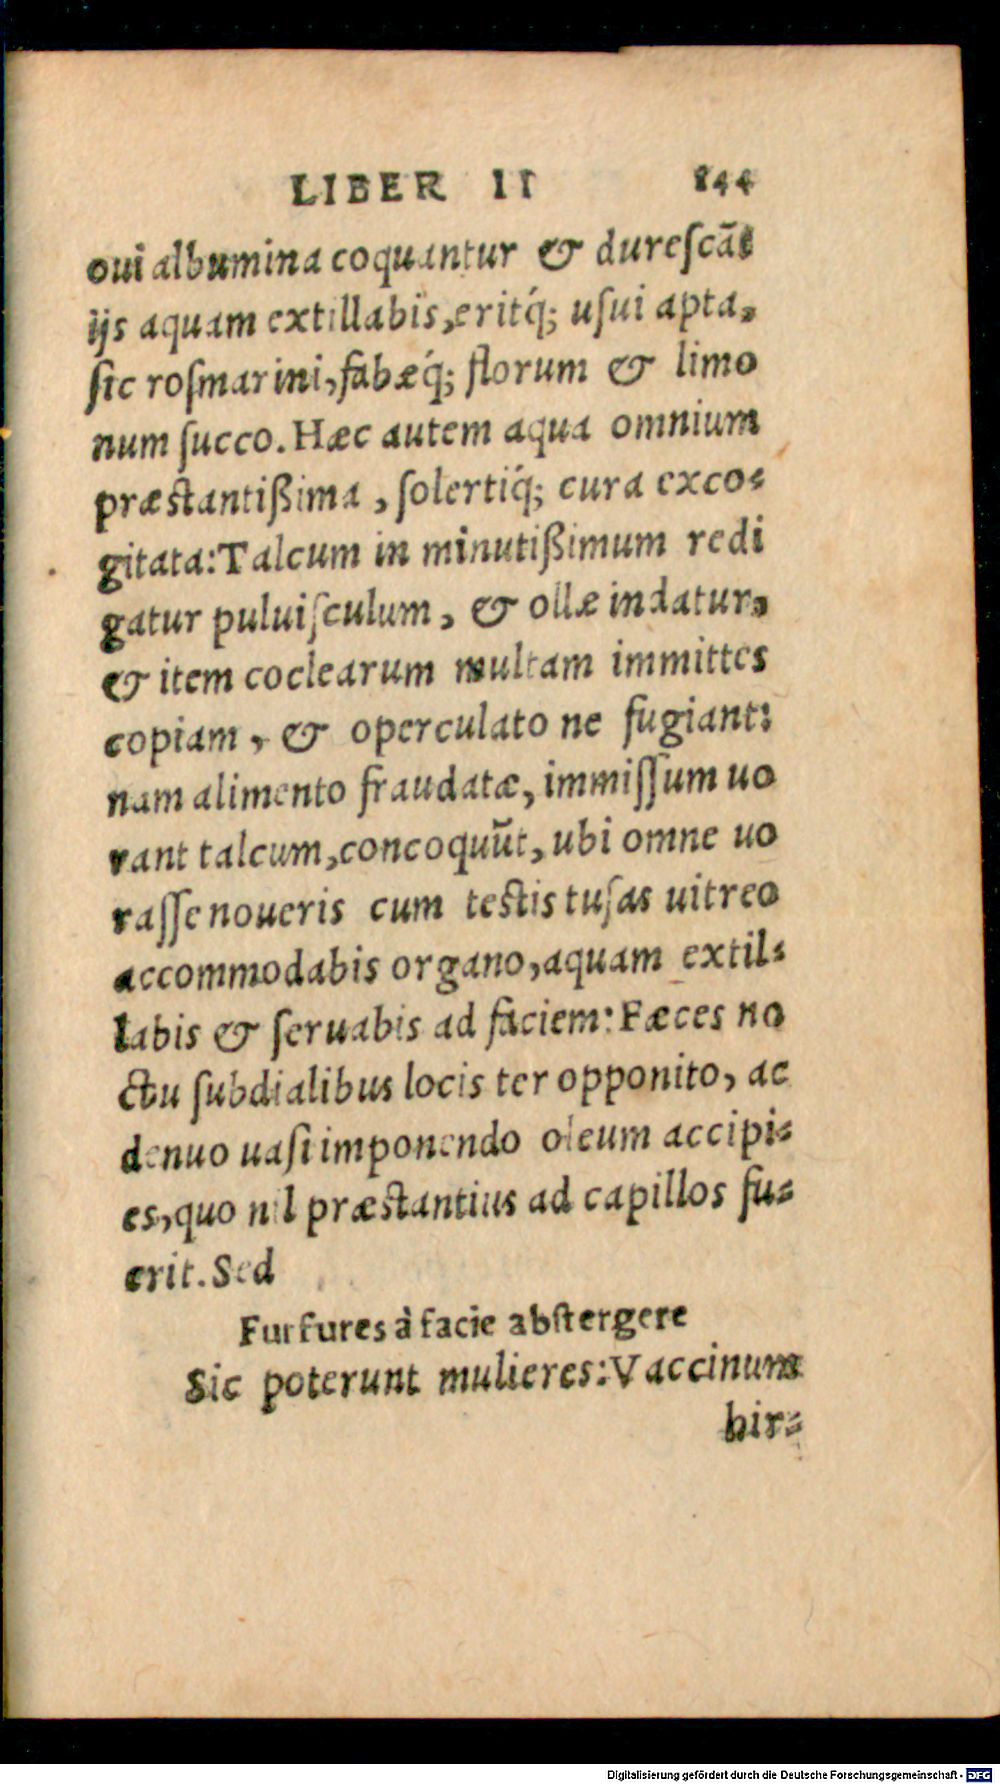 LIBER II 844
oui albumina coquantur & durescãt
ijs aquam extillabis, eritq́; usui apta,
sic rosmarini, fabæq́; florum & limo
num succo. Hæc autem aqua omnium
præstantißima, solertiq́; cura exco-
gitata: Talcum in minutißimum redi
gatur puluisculum, & ollæ indatur,
& item coclearum multam immittes
copiam, & operculato ne fugiant:
nam alimento fraudatæ, immissum uo
rant talcum, concoquũt, ubi omne uo
rasse noueris cum testis tusas uitreo
accommodabis organo, aquam extil-
labis & seruabis ad faciem: Fæces no
ctu subdialibus locis ter opponito, ac
denuo uasi imponendo oleum accipi-
es, quo nil præstantius ad capillos fu-
erit. Sed
Furfures à facie abstergere
Sic poterunt mulieres: Vaccinum
hir-
Digitalisierung gefördert durch die Deutsche Forschungsgemeinschaft - DFG